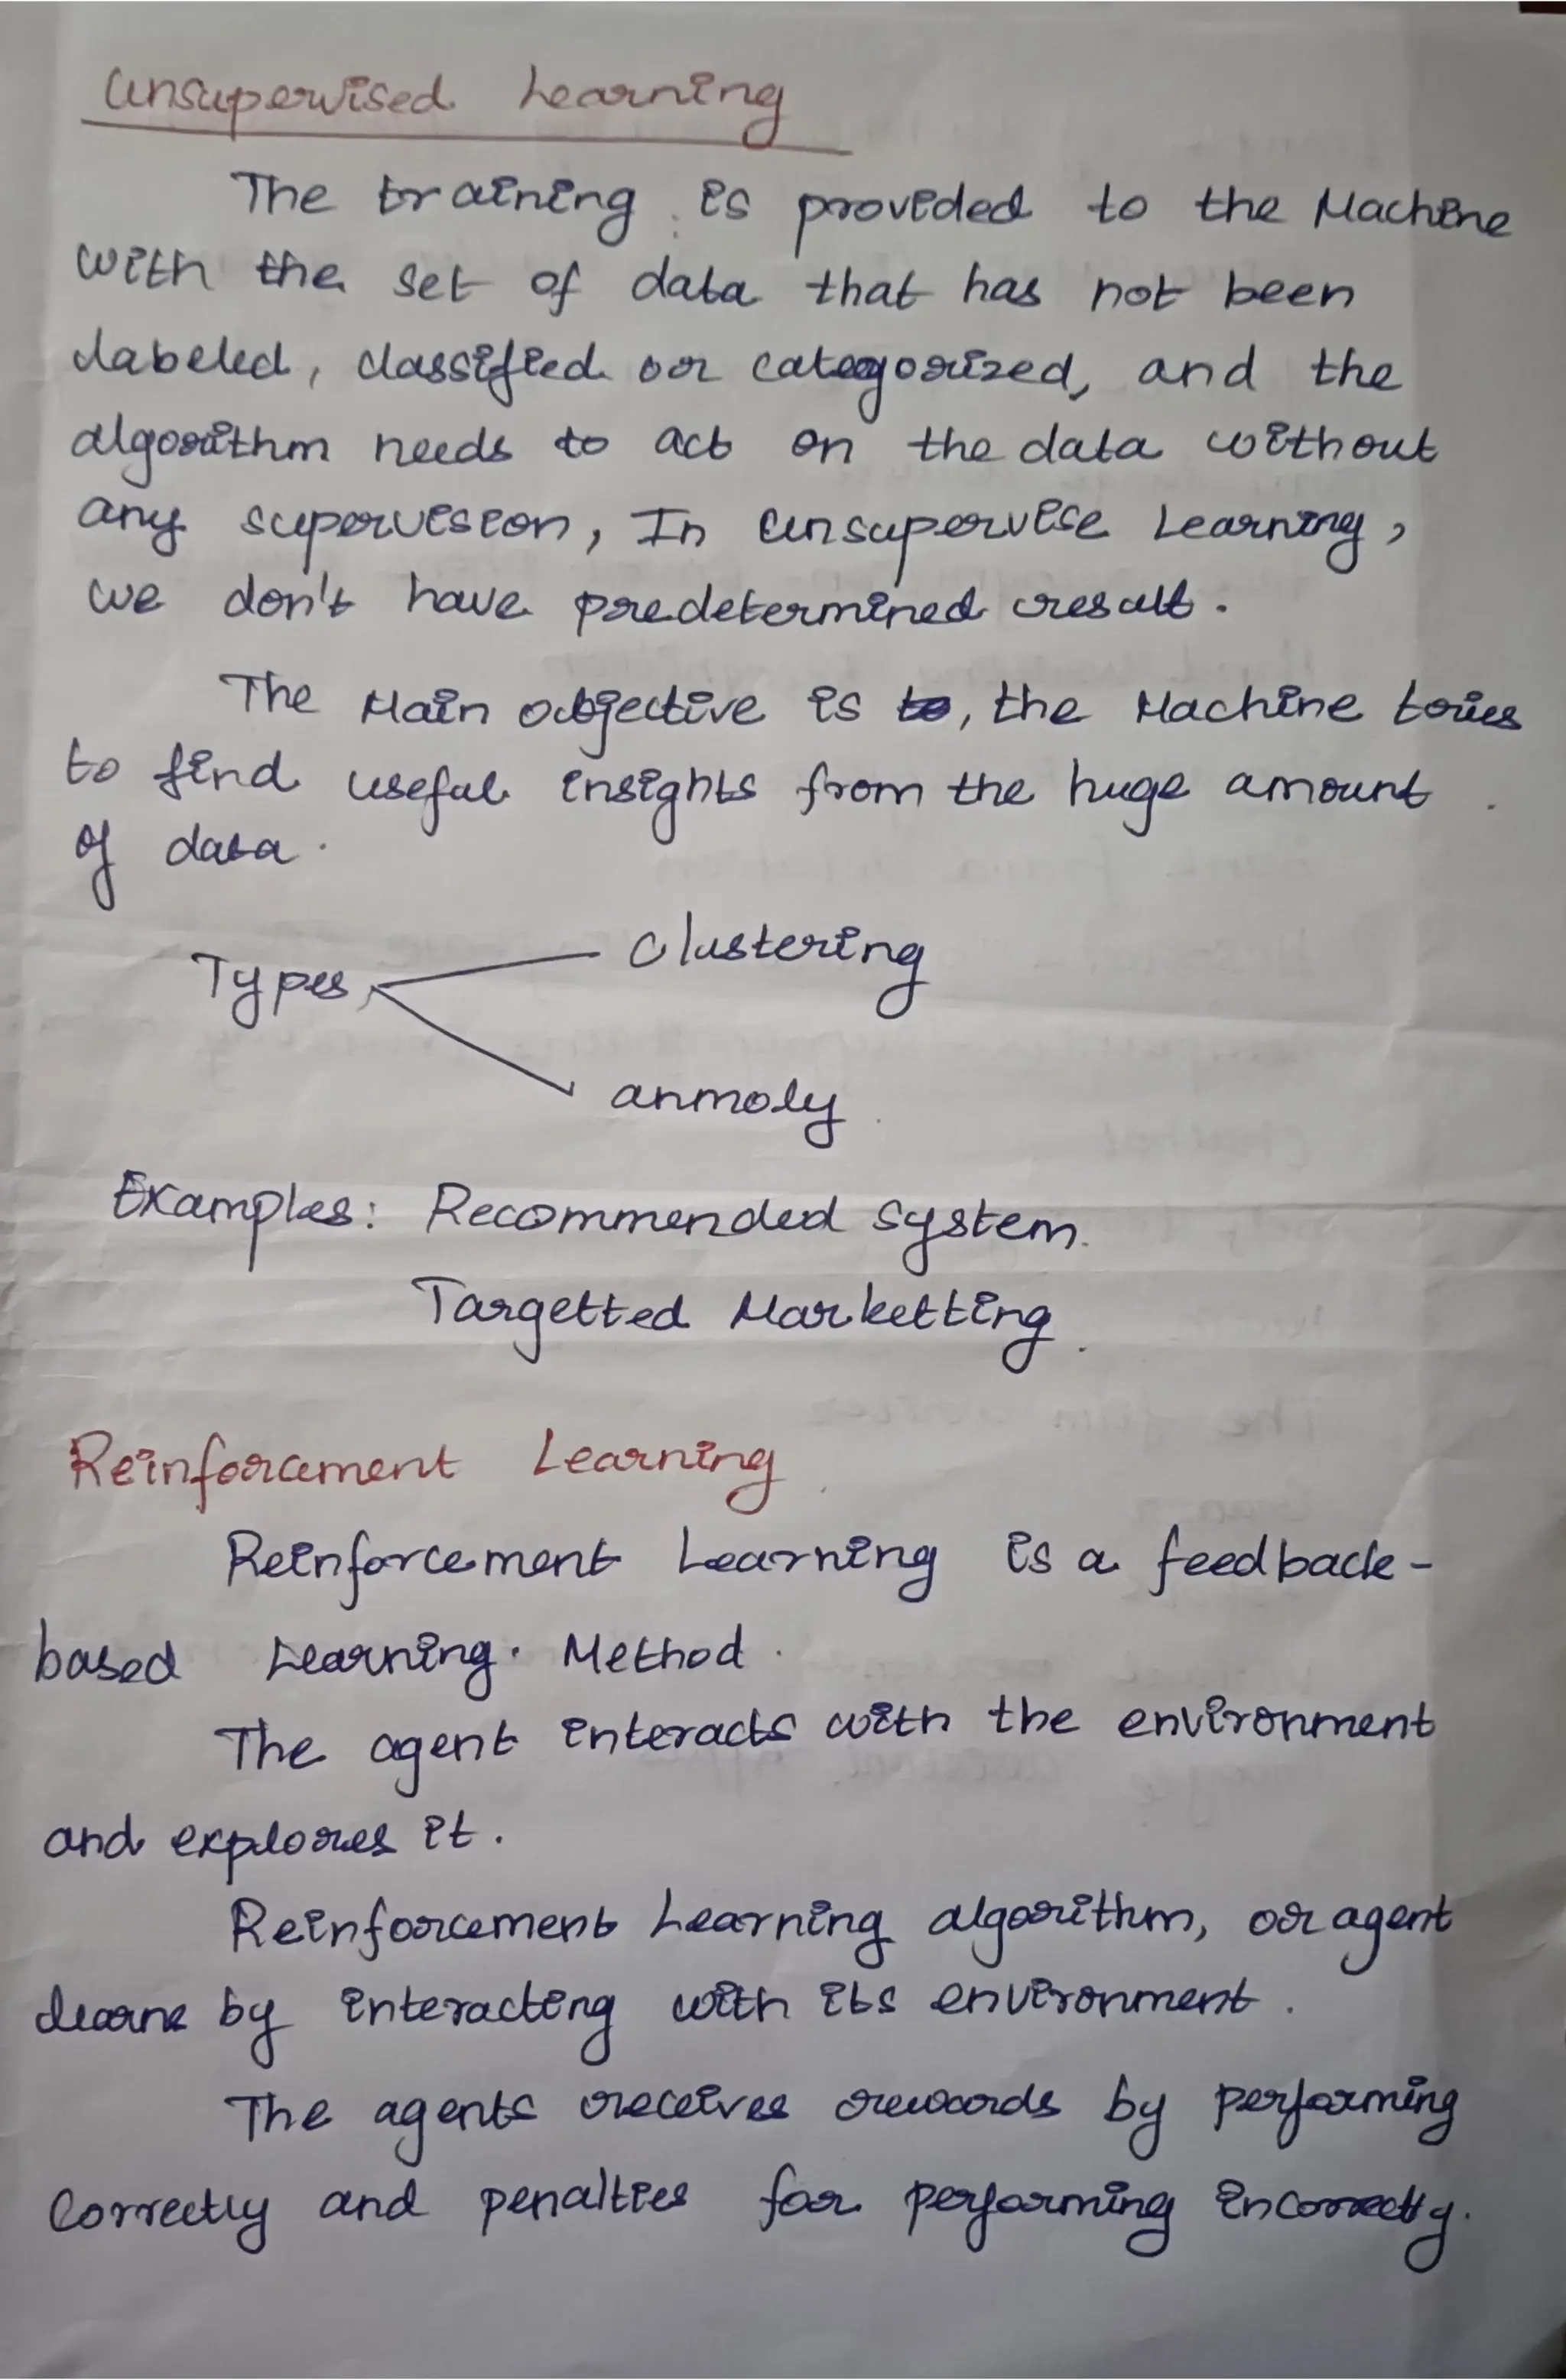 Unsupervised Learning
The training is provided to the Machine
with the set of data that has not been
labeled, classified or categorized, and the
algorithm needs to act on the data without
any supervision, In unsupervise Learning,
we don't have predetermined result.
The Main objective is to, the Machine tries
to find useful insights from the huge amount
of data.
Types
Clustering
anmoly
Examples: Recommended system.
Targetted Marketting.
Reinforcement Learning
Reinforcement Learning is a feedback-
based Learning. Method.
The agent interacts with the environment
and explores it.
Reinforcement Learning algorithm, or agent
learns by interacting with its environment.
The agents receives rewards by performing
Correctly and penalties for performing incorrectly.